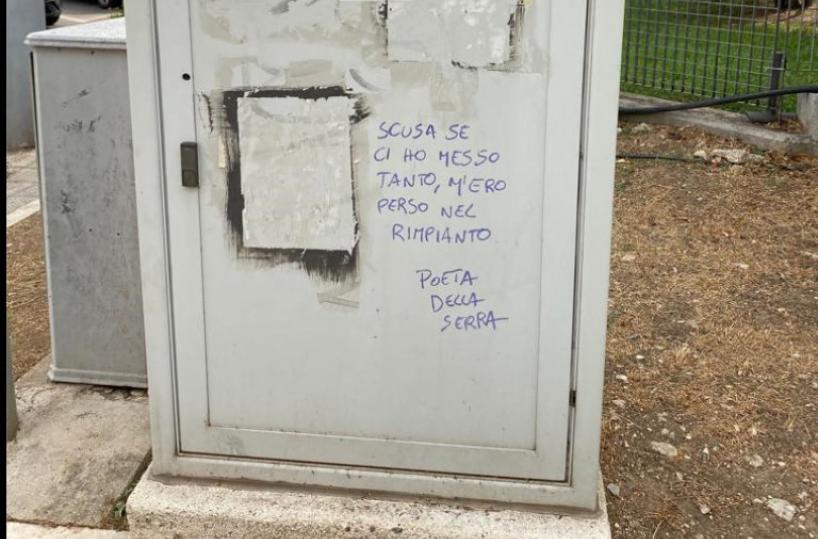 SCUSA SE
CI HO MESSO
TANTO, M'ERO
PERSO NEL
RIMPIANTO
POETA
DELLA
SERRA